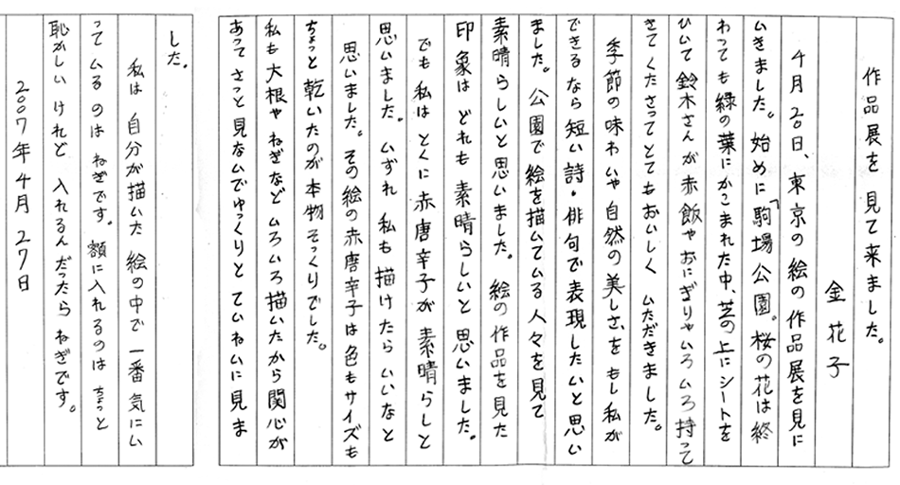 作品展を見て来ました。
金花子
4月20日、東京の絵の作品展を見に
いきました。始めに「駒場公園。桜の花は終
わっても緑の葉にかこまれた中、芝の上にシートを
ひいて鈴木さんが赤飯やおにぎりやいろいろ持って
きてくださってとてもおいしくいただきました。
季節の味わいや自然の美しさ、をもし私が
できるなら短い詩・俳句で表現したいと思い
ました。公園で絵を描いている人々を見て
素晴らしいと思いました。絵の作品を見た
印象はどれも素晴らしいと思いました。
でも私はとくに赤唐辛子が素晴らしと
思いました。いずれ私も描けたらいいなと
思いました。その絵の赤唐辛子は色もサイズも
ちょっと乾いたのが本物そっくりでした。
私も大根やねぎなどいろいろ描いたから関心が
あってさっと見ないでゆっくりとていねいに見ま
した。
私は自分が描いた絵の中で一番気にい
っているのはねぎです。額に入れるのはちょっと
恥かしいけれど入れるんだったらねぎです。
2007年4月27日